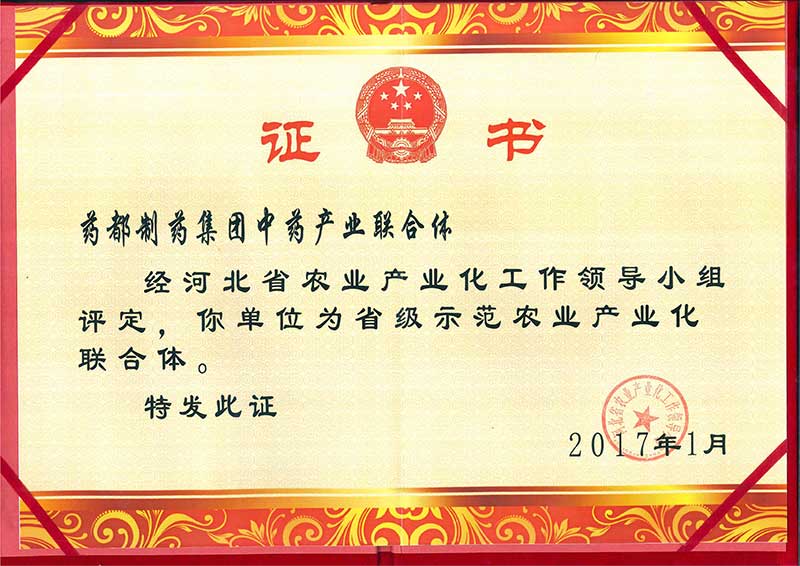 证书
药都制药集团中药产业联合体
经河北省农业产业化工作领导小组
评定，你单位为省级示范农业产业化
联合体。
特发此证
河北省农业产业化工作领导
2017年1月